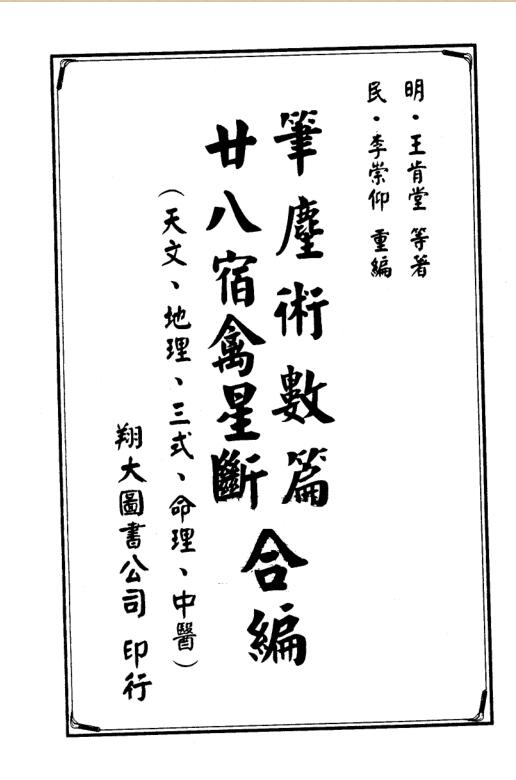 明·王肯堂 等著
民·李崇仰 重編
筆塵術數篇
廿八宿禽星斷
合編
（天文、地理、三式、命理、中醫）
翔大圖書公司 印行